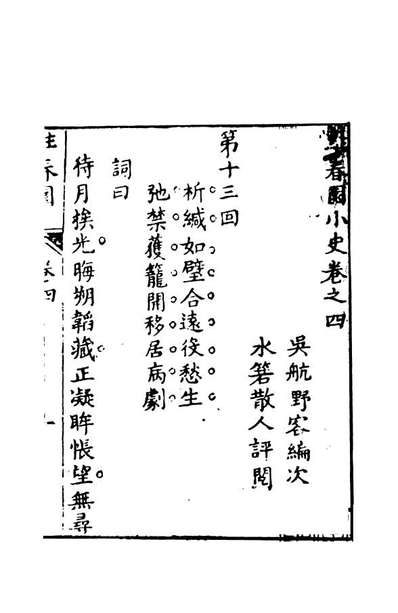 春園小史卷之四
吳航野客編次
水箬散人評閱
第十三回
析緘如璧合遠役愁生
弛禁獲籠開移居病劇
詞曰
待月挨光。晦朔韜藏。正凝眸悵望。無尋
春園
卷四